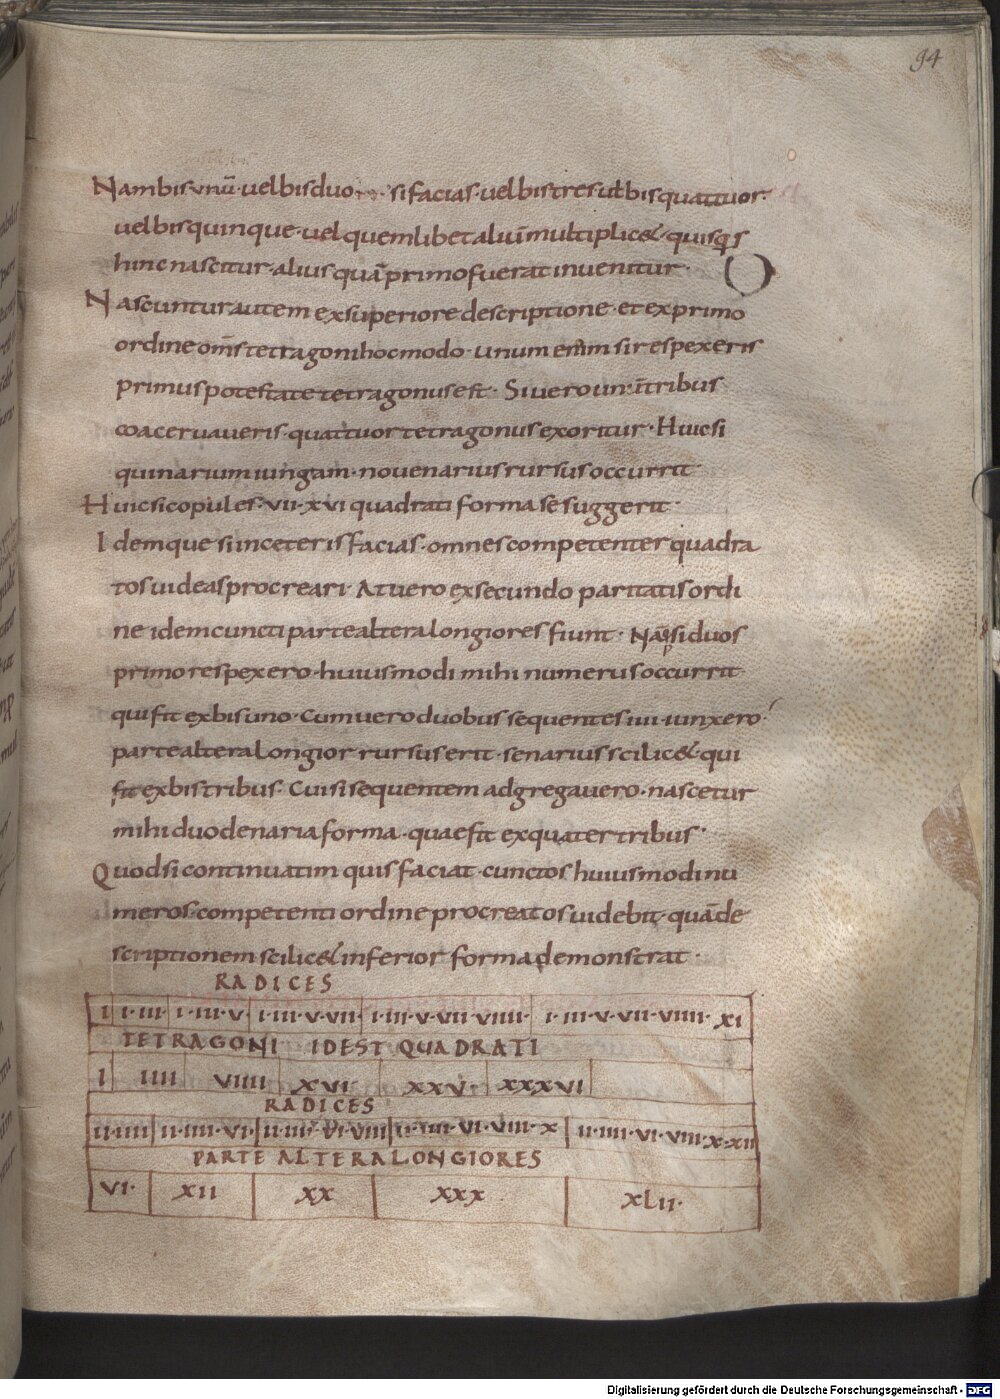 94
Nam bis unū· uel bis duo si facias· uel bis tres ut bis quattuor·
uel bis quinque· uel quemlibet aluī multiplic& quisqs
hinc nascitur· alius quā primo fuerat inuenitur·
Nascuntur autem ex superiore descriptione· et ex primo
ordine om̄s tetragoni hoc modo· unum enim si respexeris
primus potestate tetragonus est· Si uero un· ī tribus
coaceruaueris· quattuor tetragonus exoritur· Huic si
quinarium iungam· nouenarius rursus occurrit·
Huic si copules· VII· XVI quadrati forma se suggerit·
Idemque si in ceteris facias· omnes competenter quadra
tos uideas procreari· At uero ex secundo paritatis ordi
ne idem cuncti parte altera longiores fiunt· Nāq; si duos
primo respexero· huiusmodi mihi numerus occurrit·
qui fit ex bis uno· Cum uero duobus sequentes IIII iunxero·
parte altera longior rursus erit· senarius scilic&· qui
fit ex bis tribus· Cui si sequentem adgregauero· nascetur
mihi duodenaria forma· quae fit ex quater tribus·
Quod si continuatim quis faciat· cunctos huiusmodi nu
meros· competenti ordine procreatos uidebit· quā de
scriptionem scilic& inferior forma demonstrat·
RADICES
I I·III· I·III·V· I·III·V·VII· I·III·V·VII·VIIII· I·III·V·VII·VIIII·XI
TETRAGONI IDEST QUADRATI
I IIII VIIII XVI· XXV· XXXVI
RADICES
II·IIII II·IIII·VI· II·IIII·VI·VIII II·IIII·VI·VIII·X II·IIII·VI·VIII·X·XII
PARTE ALTERA LONGIORES
VI· XII XX XXX XLII·
Digitalisierung gefördert durch die Deutsche Forschungsgemeinschaft - DFG